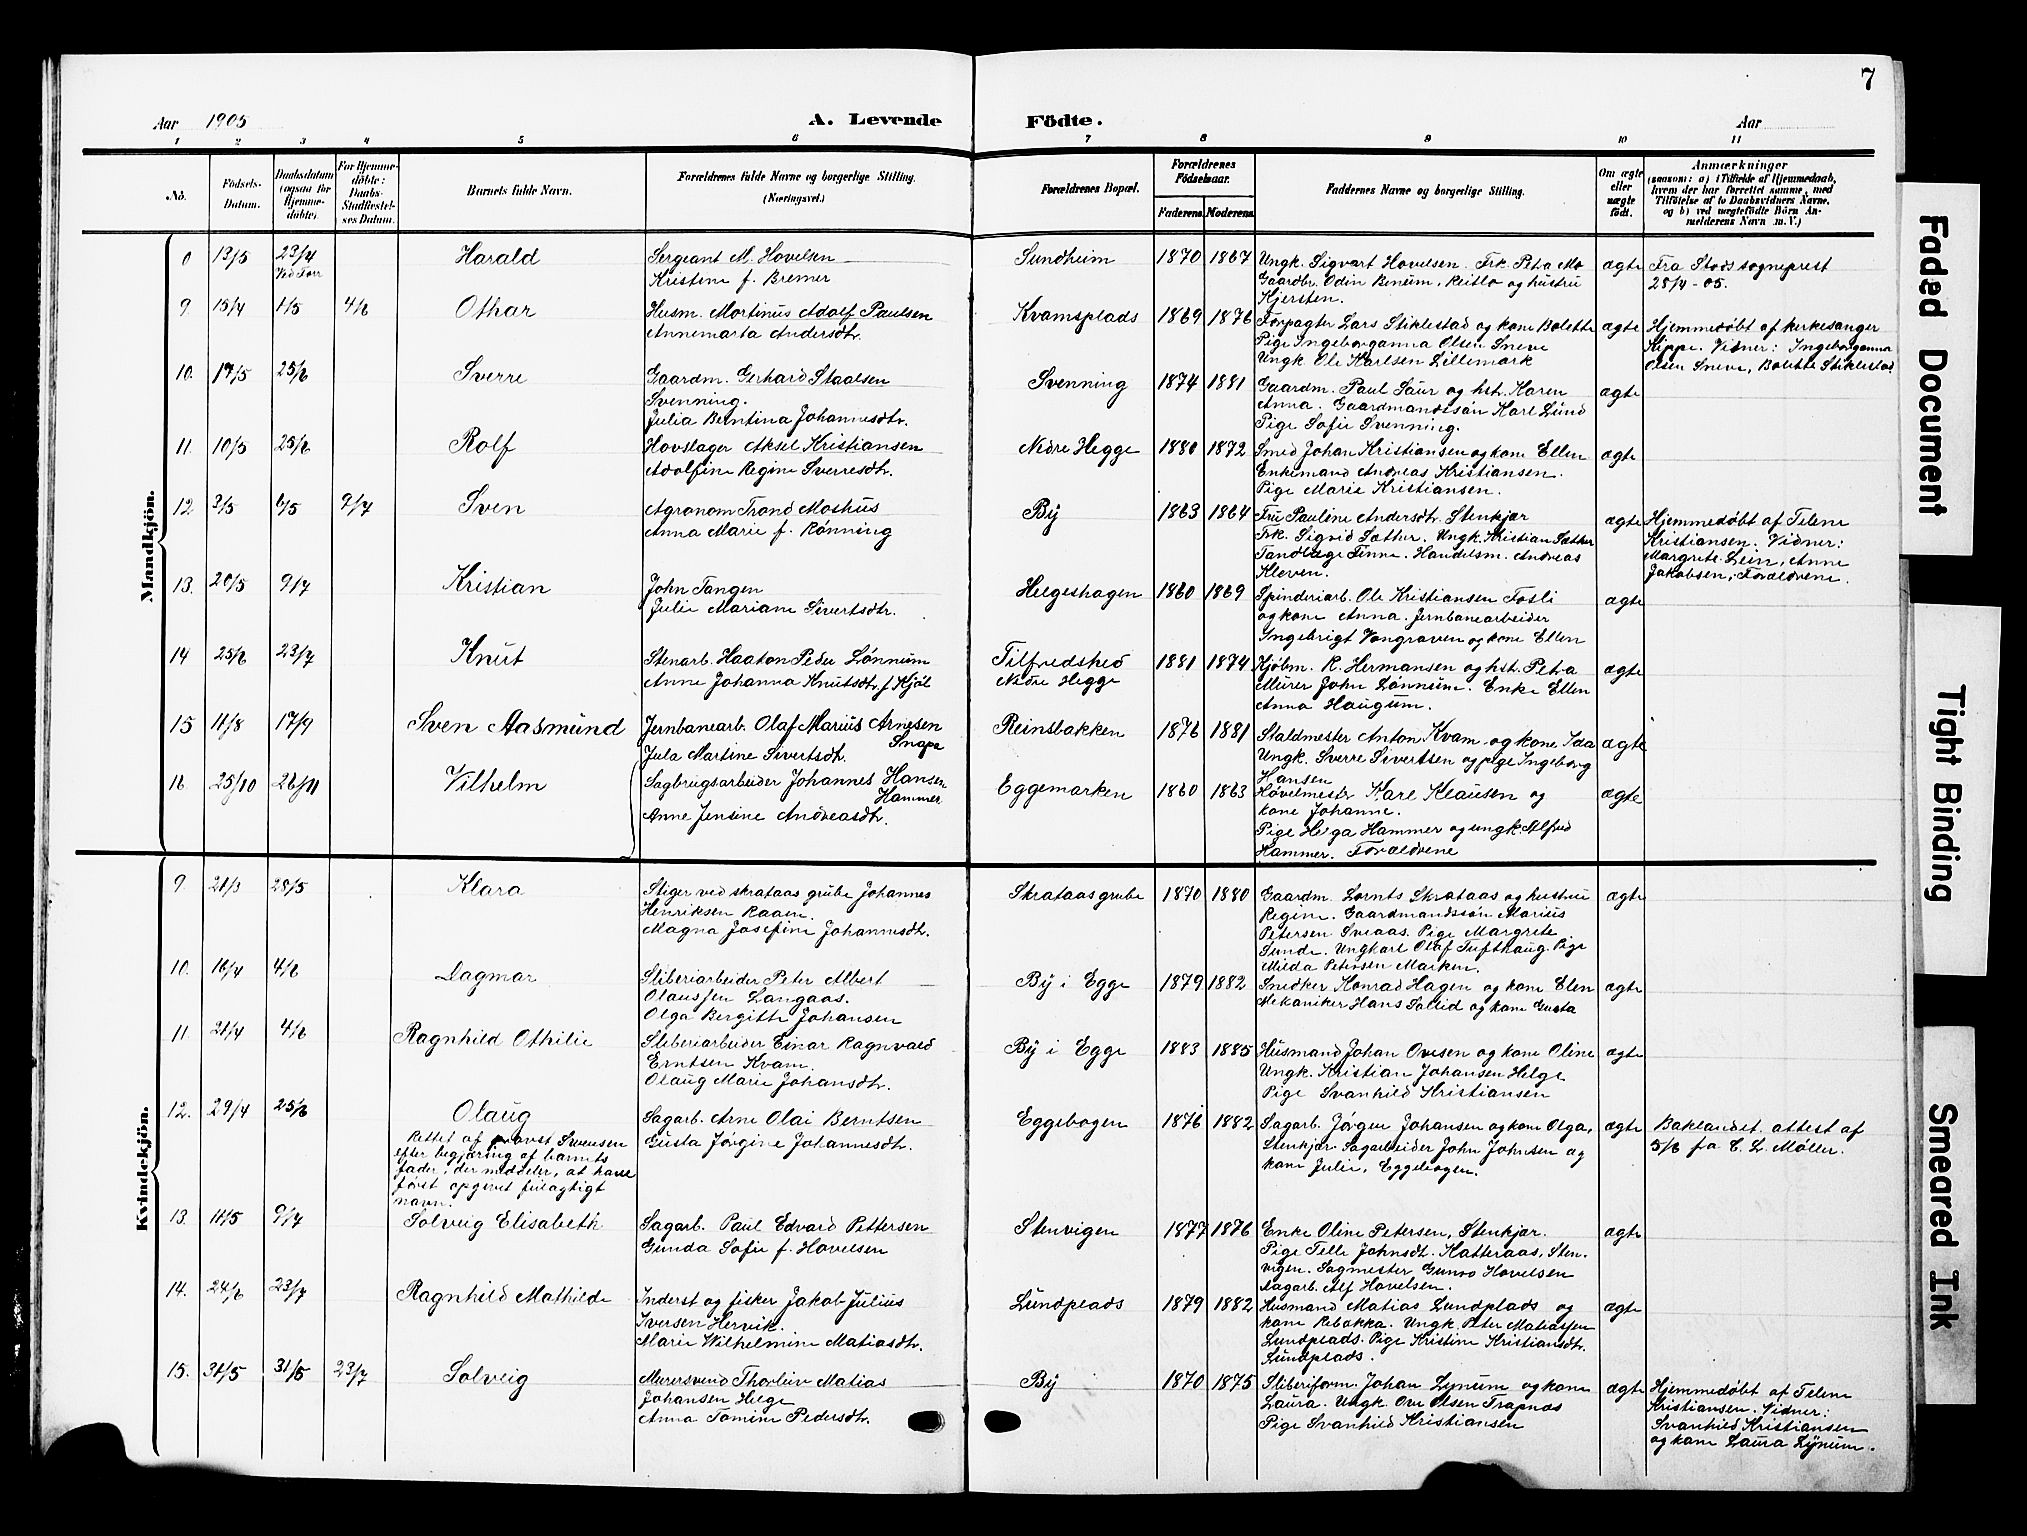 7
Aar 1905
A. Levende
Födte.
Aar
1 2 3 4 5 6 7 8 9 10 11
No.
Födsels-
Datum.
Daabsdatum
(ogsaa for
Hjemme-
döbte).
For Hjemme-
döbte:
Daabs-
Stadfæstel-
ses Datum.
Barnets fulde Navn.
Forældrenes fulde Navne og borgerlige Stilling.
(Næringsvei.)
Forældrenes Bopæl.
Forældrenes
Födselsaar.
Faderens.
Moderens.
Faddernes Navne og borgerlige Stilling.
Om ægte
eller
uægte
födt.
Anmærkninger
(saasom: a) i Tilfælde af Hjemmedaab,
hvem der har forrettet samme, med
Tilföielse af to Daabsvidners Navne,
og b) ved uægtefödte Börn An-
melderens Navn m. V.)
Mandkjön.
13/5 23/4 Harald Sergeant M. Hovelsen Sundheim 1870 1867 Ungk. Sigvart Hovelsen. Frk. Petra Mo ægte Fra Stods sogneprest
Kristine f. Bremer Gaardbr. Odin Benum, Reitlo og hustru 28/4-05.
Kjersten.
9. 15/4 1/5 4/6 Othar Husm. Martinus Adolf Paulsen Kvamsplads 1869 1876 Forpagter Lars Stiklestad og kone Bolette ægte Hjemmedøbt af kirkesanger
Annemarta Andersdtr. Pige Ingeborganna Olsen Sneve Kippe. Vidner: Ingeborganna
Ungk. Ole Karlsen Lillemark Olsen Sneve, Bolette Stiklestad
10. 17/5 25/6 Sverre Gaardm. Gerhard Staalsen Svenning 1874 1881 Gaardm. Paul Saur og hst. Karen ægte
Svenning. Anna. Gaardmandssøn Karl Lund
Julia Berntina Johannesdtr. Pige Sofie Svenning.
11. 10/5 25/6 Rolf Hovslager Aksel Kristiansen Nedre Hegge 1880 1872 Smed Johan Kristiansen og kone Ellen ægte
Adolfine Regine Sverresdtr. Enkemand Andreas Kristiansen.
Pige Marie Kristiansen.
12. 3/5 6/5 9/7 Sven Agronom Trond Moshus By 1863 1864 Fru Pauline Andersdtr. Stenkjær ægte Hjemmedøbt af Teline
Anna Marie f. Rønning Frk. Sigrid Sæther. Ungk. Kristian Sæther Kristiansen. Vidner:
Tandlæge Finne. Handelsm. Andreas Margrete Lein, Anne
Kleven. Jakobsen, Forældrene.
13. 20/5 9/7 Kristian John Tangen Helgeshagen 1860 1869 Spinderiarb. Ole Kristiansen Fosli ægte
Julie Mariane Sivertsdtr. og kone Anna. Jernbanearbeider
Ingebrigt Vongraven og kone Ellen
14 25/6 23/7 Knut Stenarb. Haaton Peder Lønnum Tilfredshed 1881 1874 Kjøbm. R. Hermansen og hst. Petra ægte
Anne Johanna Knutsdtr. f. Kjøl Nedre Hegge Murer John Lønnum. Enke Ellen
Anna Haugum.
15 11/8 17/9 Sven Aasmund Jernbanearb. Olaf Marius Arnesen Reinsbakken 1876 1881 Staldmester Anton Kvam og kone Ida ægte
Snape
Jula Martine Sivertsdtr. Ungk. Sverre Sivertsen og pige Ingeborg
Hansen
16 25/10 26/11 Vilhelm Sagbrugsarbeider Johannes Hansen Eggemarken 1860 1863 Høvelmester Karl Klausen og ægte
Hammer kone Johanne.
Anne Jensine Andreasdtr. Pige Helga Hammer og ungk. Alfred
Hammer. Forældrene
Kvindekjön.
9. 21/3 28/5 Klara Stiger ved skrataas grube Johannes Skrataas grube 1870 1880 Gaardm. Lornts Skrataas og hustru ægte
Henriksen Raaen. Regine. Gaardmandssøn Marius
Magna Josefine Johannesdtr. Petersen Sveaas. Pige Margrete
Sunde. Ungkarl Olaf Tufthaug. Pige
Milda Petersen Marken.
10. 16/4 4/6 Dagmar Sliberiarbeider Peter Albert By i Egge 1879 1882 Snedker Konrad Hagen og kone Elen ægte
Olaussen Langaas. Mekaniker Hans Saltid og kone Gusta
Olga Bergitte Johansen
11. 21/4 4/6 Ragnhild Othilie Sliberiarbeider Einar Ragnvald By i Egge 1883 1885 Husmand Johan Ovesen og kone Oline ægte
Erntsen Kvam. Ungk. Kristian Johansen Helge
Olaug Marie Johansdtr. Pige Svanhild Kristiansen
12. 29/4 25/6 Olaug Sagarb. Arne Olai Berntsen Eggebogen 1876 1882 Sagarb. Jørgen Johansen og kone Olga, ægte Baklandet. attest af
Rettet af provst Svensen Gusta Jørgine Johannesdtr. Stenkjær. Sagarbeider John Johnsen og 5/6 fra C. L. Møller.
efter begjæring af barnets kone Julie, Eggebogen.
fader, der meddeler, at have
først opgivet feilagtigt
navn.
13. 11/5 9/7 Solveig Elisabeth Sagarb. Paul Edvard Pettersen Stenvigen 1877 1876 Enke Oline Petersen, Stenkjær. ægte
Gunda Sofie f. Hovelsen Pige Telle Johnsdt. Katteraas, Sten-
vigen. Sagmester Gunvo Hovelsen
Sagarb. Alf Hovelsen.
14. 24/6 23/7 Ragnhild Mathilde Inderst og fisker Jakob Julius Lundplads 1879 1882 Husmand Matias Lundplads og ægte
Iversen Hervik. kone Rebekka. Ungk. Peter Matiassen
Marie Wilhelmine Matiasdtr. Lundplads. Pige Kristine Kristiansdtr.
Lundplads.
15. 31/5 31/5 23/7 Solveig Murersvend Thorleiv Matias By 1870 1875 Sliberiform. Johan Lynum og kone ægte Hjemmedøbt af Teline
Johansen Helge Laura. Ungk. Ove Olsen Trapnæs Kristiansen. Vidner:
Anna Tomine Pedersdtr. Pige Svanhild Kristiansen Svanhild Kristiansen
og kone Laura Lynum.
Faded Document
Tight Binding
Smeared Ink